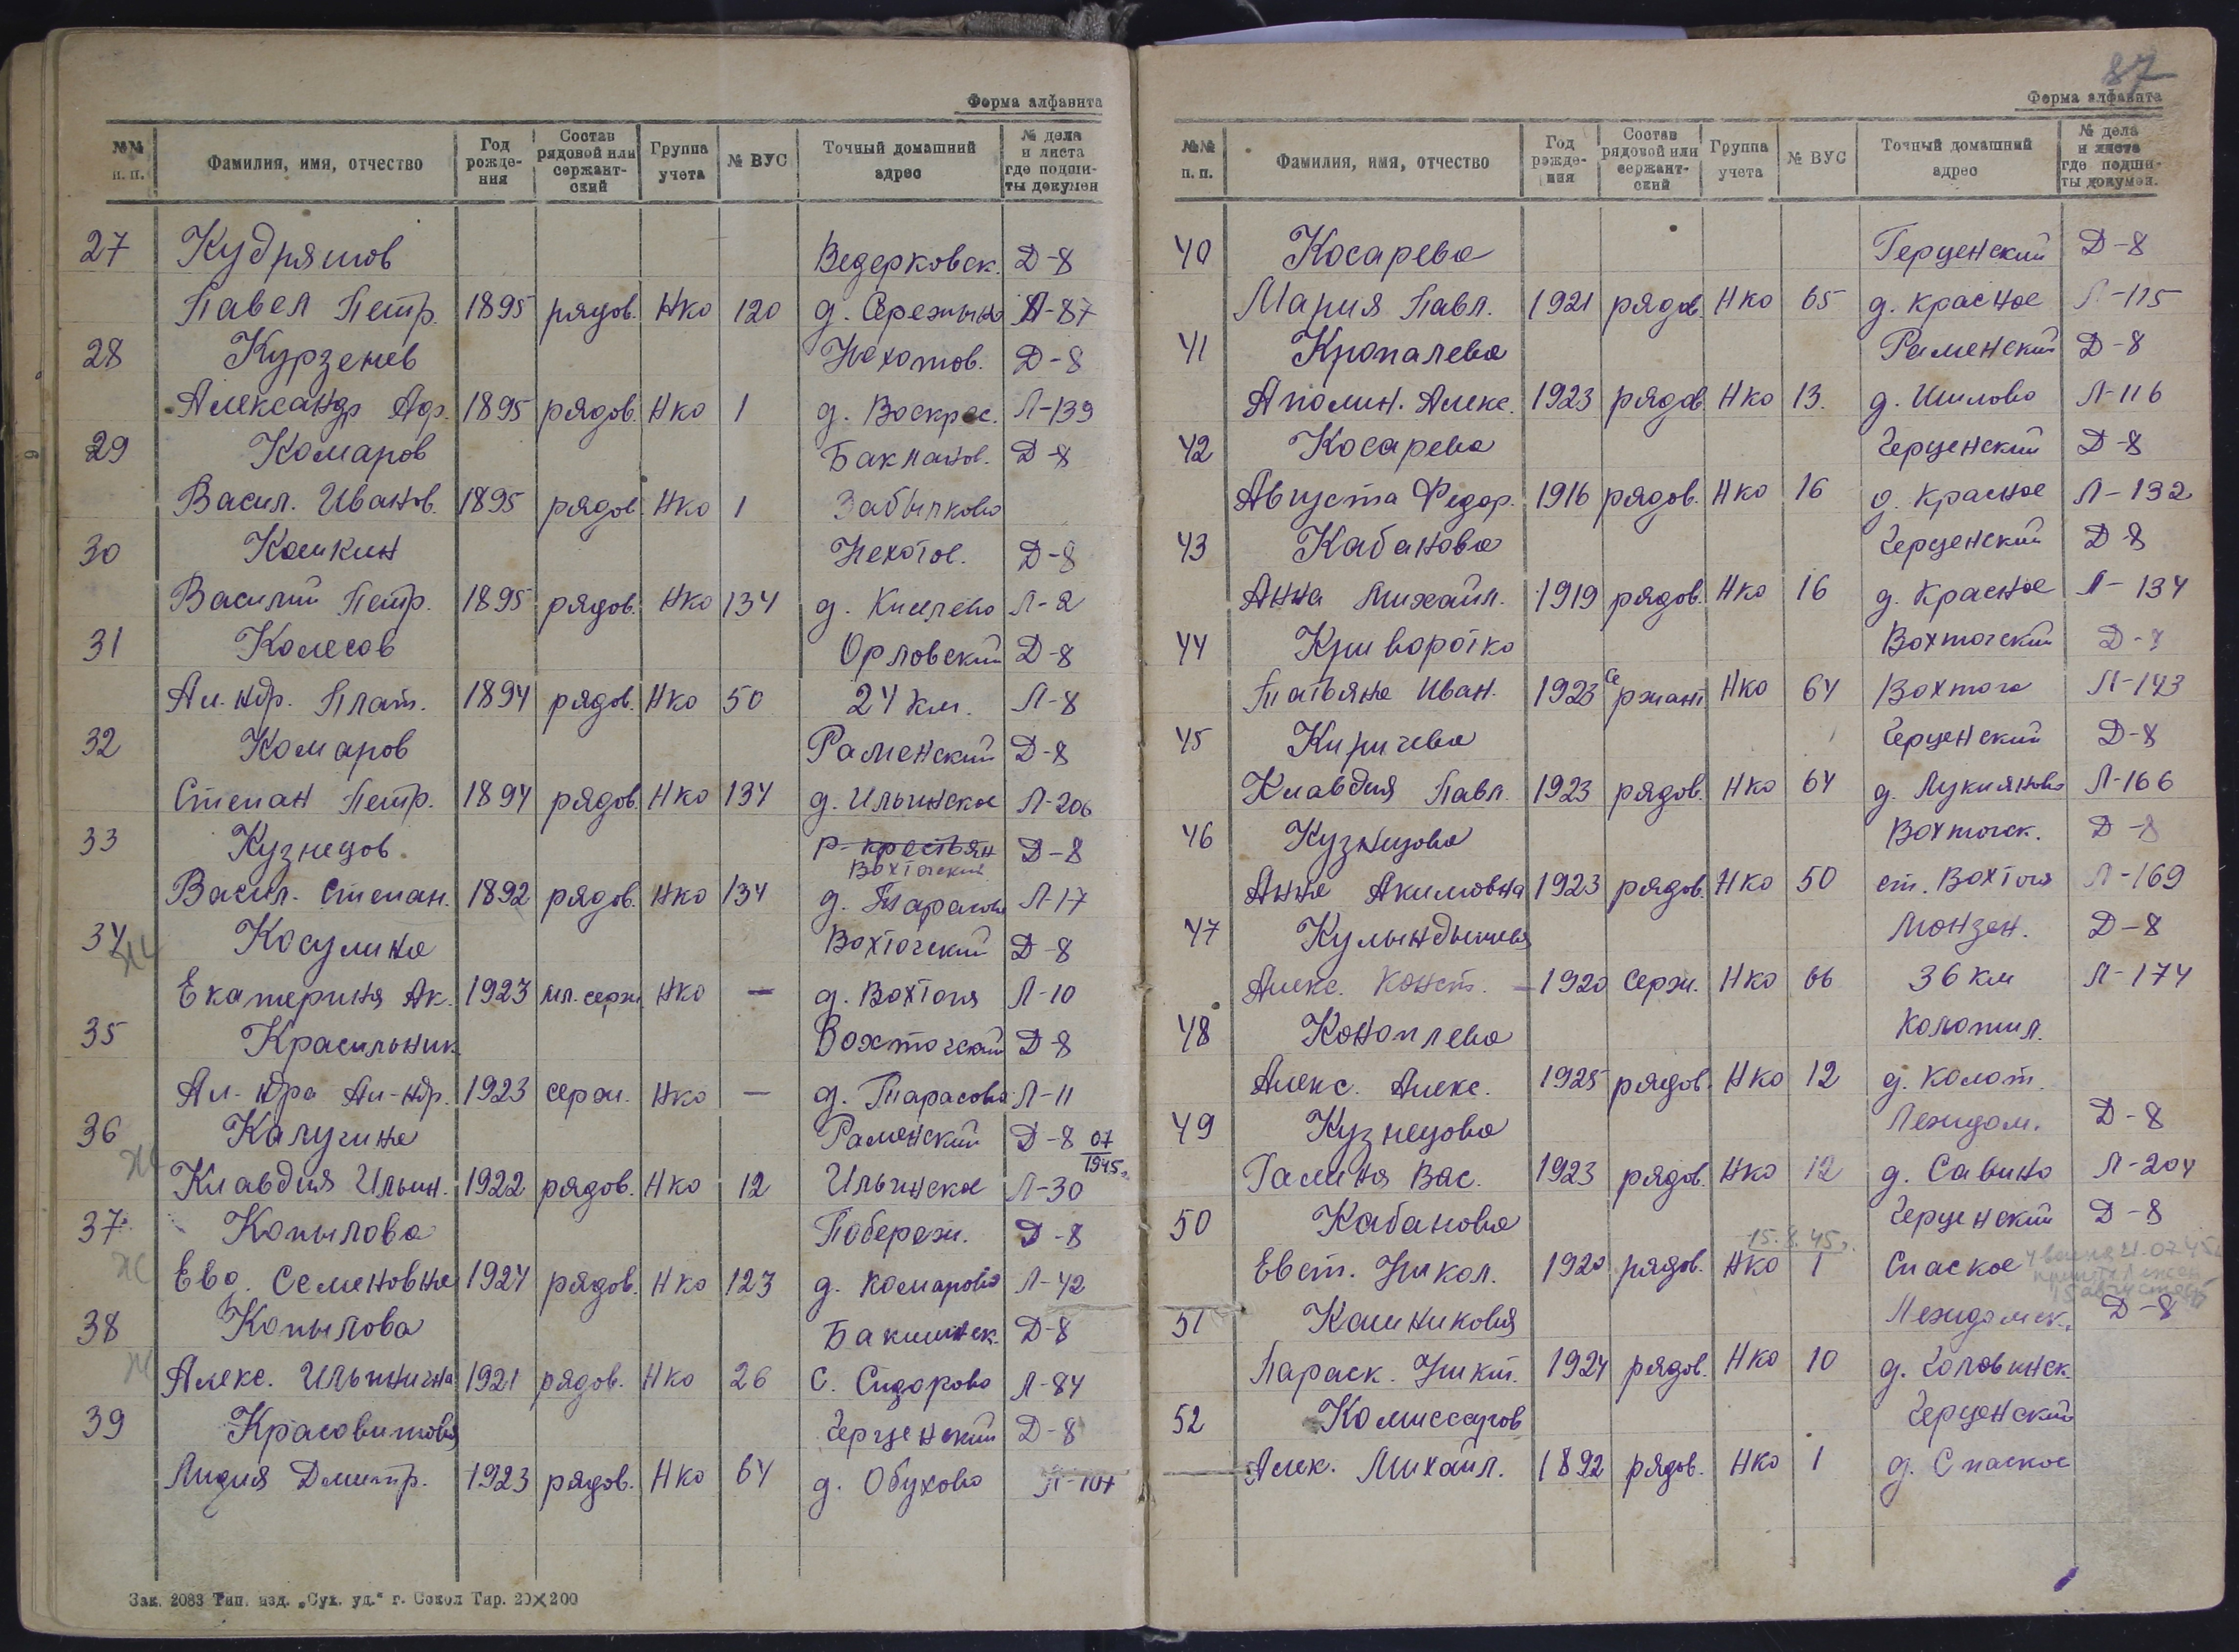 Форма алфавита
№№ п. п. Фамилия, имя, отчество Год рожде-ния Состав рядовой или сержант-ский Группа учета № ВУС Точный домашний адрес № дела и листа где подши-ты докумен
27 Кудряшов Ведерковск. Д-8
Павел Петр. 1895 рядов. Нко 120 д. Л-87
28 Курзенев Нохотов. Д-8
Александр 1895 рядов. Нко 1 д. Воскрес. Л-139
29 Комаров Бакланов. Д-8
Васил. Иванов. 1895 рядов. Нко 1
30 Кошкин Нехотов. Д-8
Василий Петр. 1895 рядов. Нко 134 д. Киселево Л-2
31 Колесов Орловский Д-8
Ал-ндр. Плат. 1894 рядов. Нко 50 24 км. Л-8
32 Комаров Раменский Д-8
Степан Петр. 1894 рядов. Нко 134 д. Ильинское Л-206
33 Кузнецов р-крестьян Д-8
Вохтогский
Васил. Степан. 1892 рядов. Нко 134 д. Тарасово Л-17
34 Косулина Вохтогский Д-8
Ж
Екатерина Ак. 1923 мл. серж Нко — д. Вохтога Л-10
35 Красильник Вохтогский Д-8
Ал-ндра Ал-ндр. 1923 серж. Нко — д. Тарасово Л-11
36 Калугина Раменский Д-8 07/1945г.
Ж
Клавдия Ильин. 1922 рядов. Нко 12 Ильинское Л-30
37 Копылова Побереж. Д-8
Ж
Евд. Семеновна 1924 рядов. Нко 123 д. Комарово Л-42
38 Копылова Д-8
Ж
Алекс. Ильинична 1921 рядов. Нко 26 с. Сидорово Л-84
39 Красовитова Герценский Д-8
Лидия Дмитр. 1923 рядов. Нко 64 д. Обухово Л-107
Зак. 2083 Тип. изд. „Сух. уд.“ г. Сокол Тир. 20×200
87
Форма алфавита
№№ п. п. Фамилия, имя, отчество Год рожде-ния Состав рядовой или сержант-ский Группа учета № ВУС Точный домашний адрес № дела и листа где подши-ты докумен.
40 Косарева Герценский Д-8
Мария Павл. 1921 рядов. Нко 65 д. Красное Л-115
41 Кропалева Раменский Д-8
Аполин. Алекс. 1923 рядов Нко 13. д. Шилово Л-116
42 Косарева Герценский Д-8
Августа Федор. 1916 рядов. Нко 16 д. Красное Л-132
43 Кабанова Герценский Д-8
Анна Михайл. 1919 рядов. Нко 16 д. Красное Л-134
44 Криворотко Вохтогский Д-8
Татьяна Иван. 1923 Сержант Нко 64 Вохтога Л-143
45 Киричева Герценский Д-8
Клавдия Павл. 1923 рядов. Нко 64 д. Лукианово Л-166
46 Кузнецова Вохтогск. Д-8
Анна Акимовна 1923 рядов. Нко 50 ст. Вохтога Л-169
47 Кулындышева Монзен. Д-8
Алекс. Конст. 1920 Серж. Нко 66 36 км Л-174
48 Коноплева
Алекс. Алекс. 1925 рядов. Нко 12 д. Колот.
49 Кузнецова Леждом. Д-8
Галина Вас. 1923 рядов. Нко 12 д. Савино Л-204
50 Кабанова Герценский Д-8
15.8.45г.
Евст. Никол. 1920 рядов. Нко 1 Спаское
51 Кашникова Лежгдомск. Д-8
Параск. Никит. 1924 рядов. Нко 10 д. Головинск.
52 Комиссаров Герценский
Алек. Михайл. 1892 рядов. Нко 1 д. Спаское